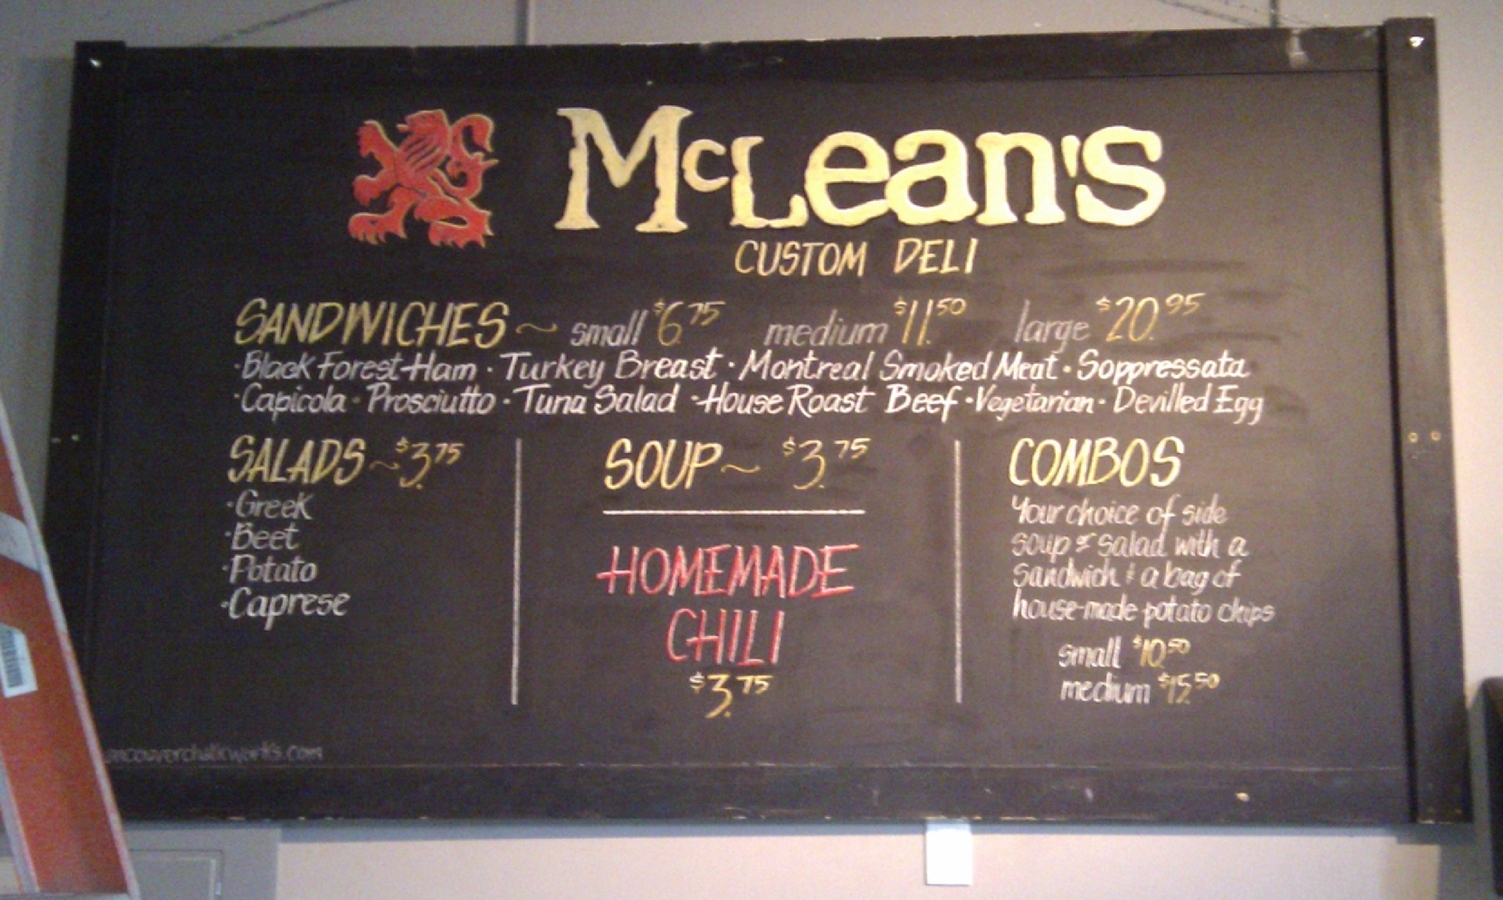 McLean's
CUSTOM DELI
SANDWICHES ~ small $6.75 medium $11.50 large $20.95
·Black Forest Ham · Turkey Breast · Montreal Smoked Meat · Soppressata
·Capicola · Prosciutto · Tuna Salad · House Roast Beef · Vegetarian · Devilled Egg
SALADS ~ $3.75
·Greek
·Beet
·Potato
·Caprese
SOUP ~ $3.75
HOMEMADE
CHILI
$3.75
COMBOS
Your choice of side
soup or salad with a
sandwich & a bag of
house-made potato chips
small $10.50
medium $15.50
ancouverchalkworks.com